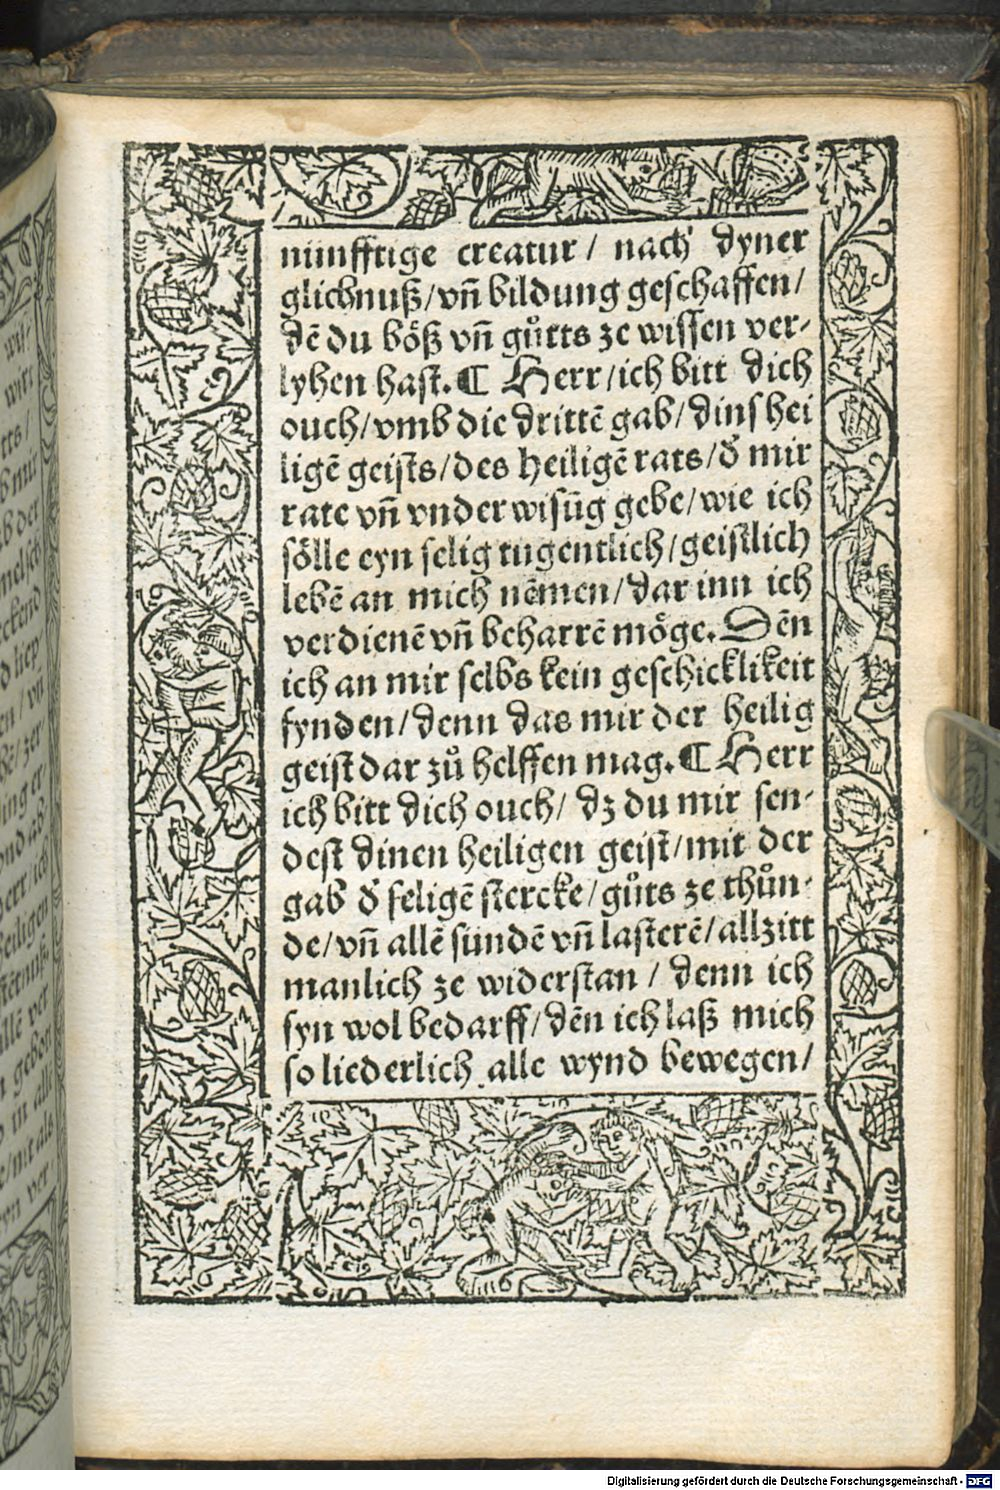 nünfftige creatur / nach dyner
glichnuß/vn̄ bildung geschaffen/
dē du bőß vn̄ gůtts ze wissen ver⸗
lyhen hast. ¶ Herr/ich bitt dich
ouch/vmb die drittē gab/dins hei
ligē geists/des heiligē rats/d̕ mir
rate vn̄ vnderwisūg gebe/wie ich
sőlle eyn selig tugentlich/geistlich
lebē an mich nēmen/dar inn ich
verdienē vn̄ beharrē mőge. Dēn
ich an mir selbs kein geschicklikeit
fynden/denn das mir der heilig
geist dar zů helffen mag. ¶ Herr
ich bitt dich ouch/ dz du mir sen⸗
dest dinen heiligen geist/mit der
gab d̕ seligē stercke/gůts ze thůn⸗
de/vn̄ allē sündē vn̄ lasterē/allzitt
manlich ze widerstan / denn ich
syn wol bedarff/dēn ich laß mich
so liederlich alle wynd bewegen/
Digitalisierung gefördert durch die Deutsche Forschungsgemeinschaft - DFG